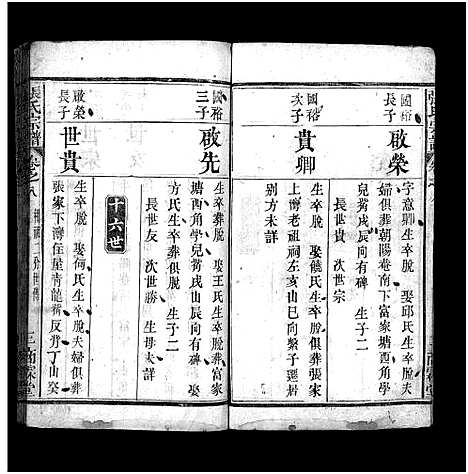 國裕
長子
啟榮
字意聊生卒脫　娶邱氏生卒脫
婦俱葬朝陽菴南下富家塘西角學
兒背戌辰向有碑　生子二
長世貴　次世宗
國裕
次子
貴卿
生卒脫　娶饒氏生卒脫俱葬張家
上灣老祖祠左亥山巳向兼乾
別方未詳
國裕
三子
啟先
生卒葬脫　娶王氏生卒脫葬富家
塘西角學兒背戌山辰向有碑　娶
方氏生卒葬俱脫　生子二
長世友　次世勝　生母未詳
十六世
啟榮
長子
世貴
生卒脫　娶何氏生卒脫夫婦俱葬
張家下灣住屋青龍背反背丁山癸
張氏宗譜
卷之八